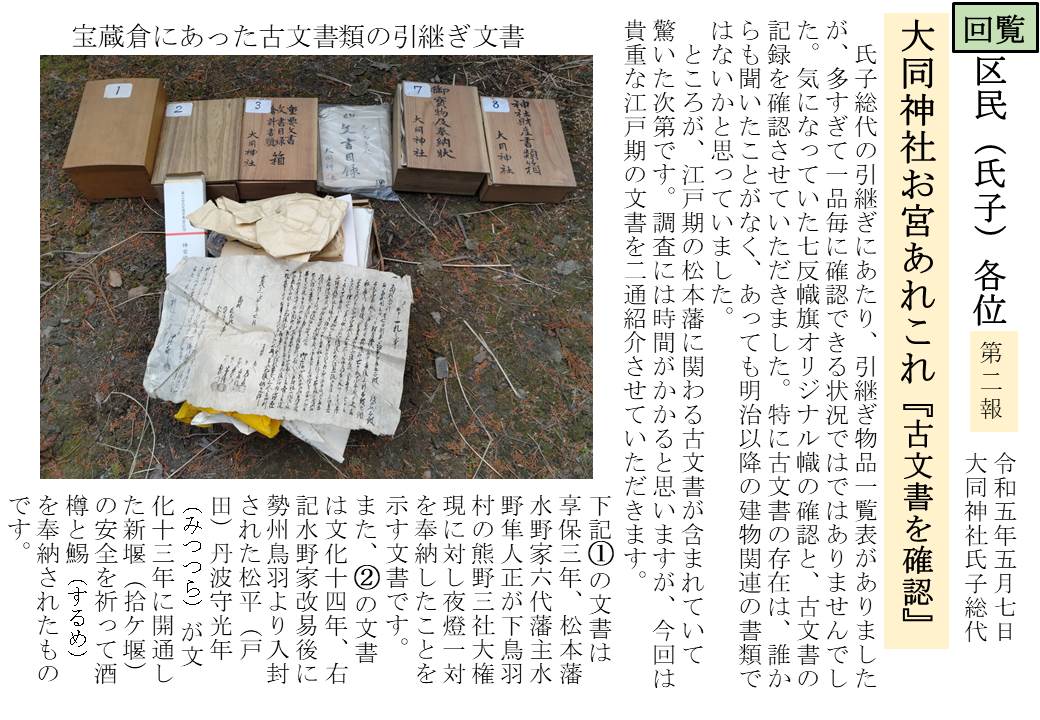 回覧
区民（氏子）各位
第二報
令和五年五月七日
大同神社氏子総代
大同神社お宮あれこれ『古文書を確認』
氏子総代の引継ぎにあたり、引継ぎ物品一覧表がありました
が、多すぎて一品毎に確認できる状況ではではありませんでし
た。気になっていた七反幟旗オリジナル幟の確認と、古文書の
記録を確認させていただきました。特に古文書の存在は、誰か
らも聞いたことがなく、あっても明治以降の建物関連の書類で
はないかと思っていました。
ところが、江戸期の松本藩に関わる古文書が含まれていて
驚いた次第です。調査には時間がかかると思いますが、今回は
貴重な江戸期の文書を二通紹介させていただきます。
宝蔵倉にあった古文書類の引継ぎ文書
1
2
3
重要文書
文書目録
会計書類
箱
大同神社
四年書目録
大同神社
7
御宝物及奉納状
大同神社
8
神社財産書類箱
大同神社
下記①の文書は
享保三年、松本藩
水野家六代藩主水
野隼人正が下鳥羽
村の熊野三社大権
現に対し夜燈一対
を奉納したことを
示す文書です。
また、②の文書
は文化十四年、右
記水野家改易後に
勢州鳥羽より入封
された松平（戸
田）丹波守光年
（みつつら）が文
化十三年に開通し
た新堰（拾ケ堰）
の安全を祈って酒
樽と鯣（するめ）
を奉納されたもの
です。